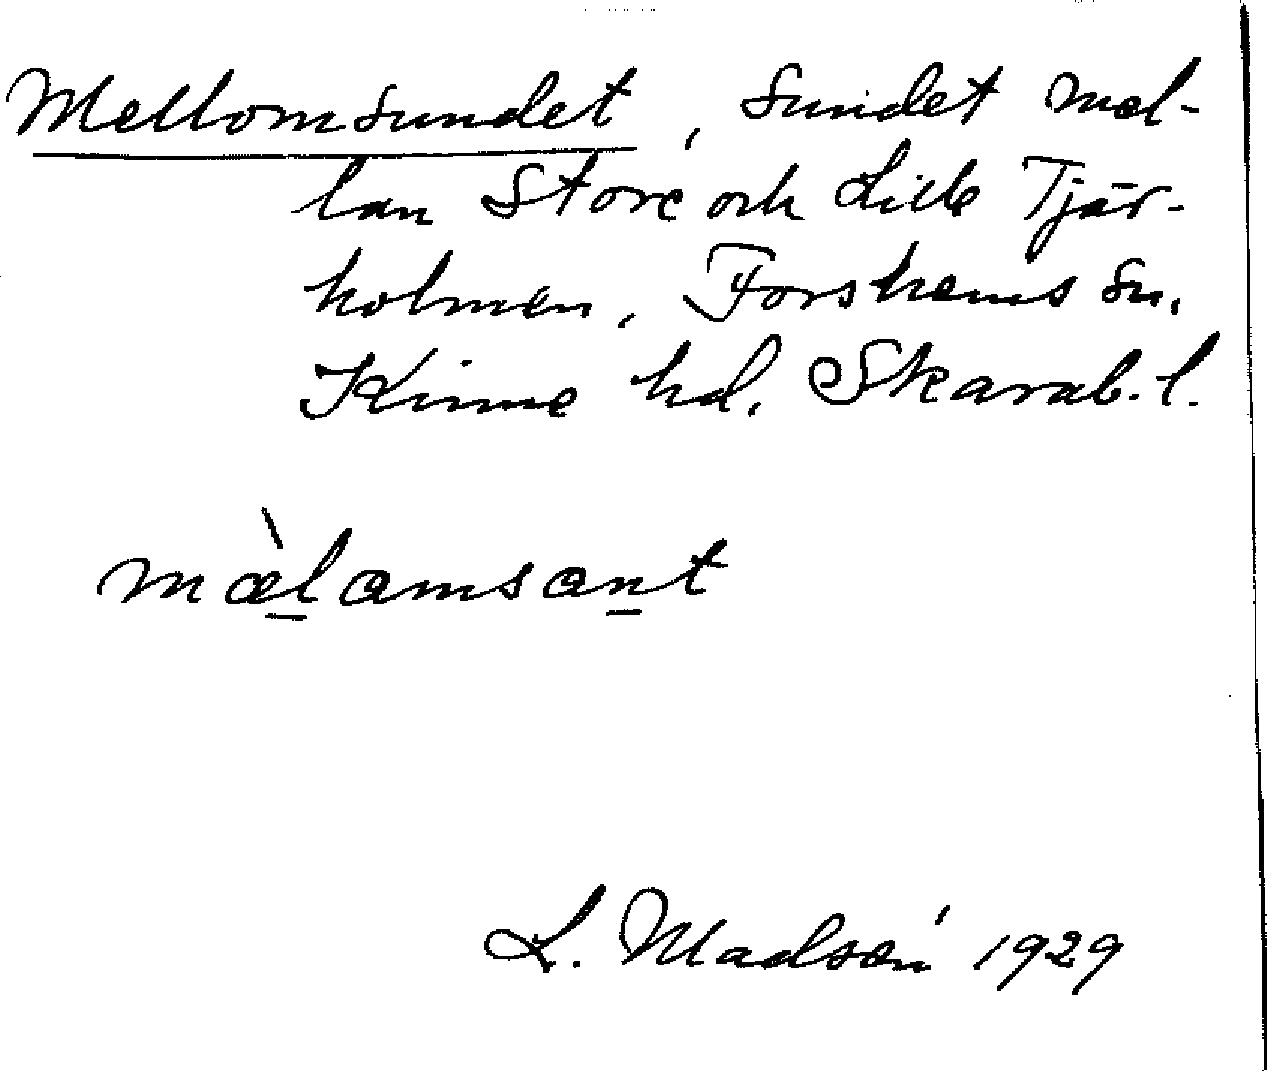 Mellomsundet, sundet mel-
lan Store och Lille Tjär-
holmen, Forshems sn,
Kinne hd, Skarab. l.
mæ̀lamsant
L. Madsén 1929